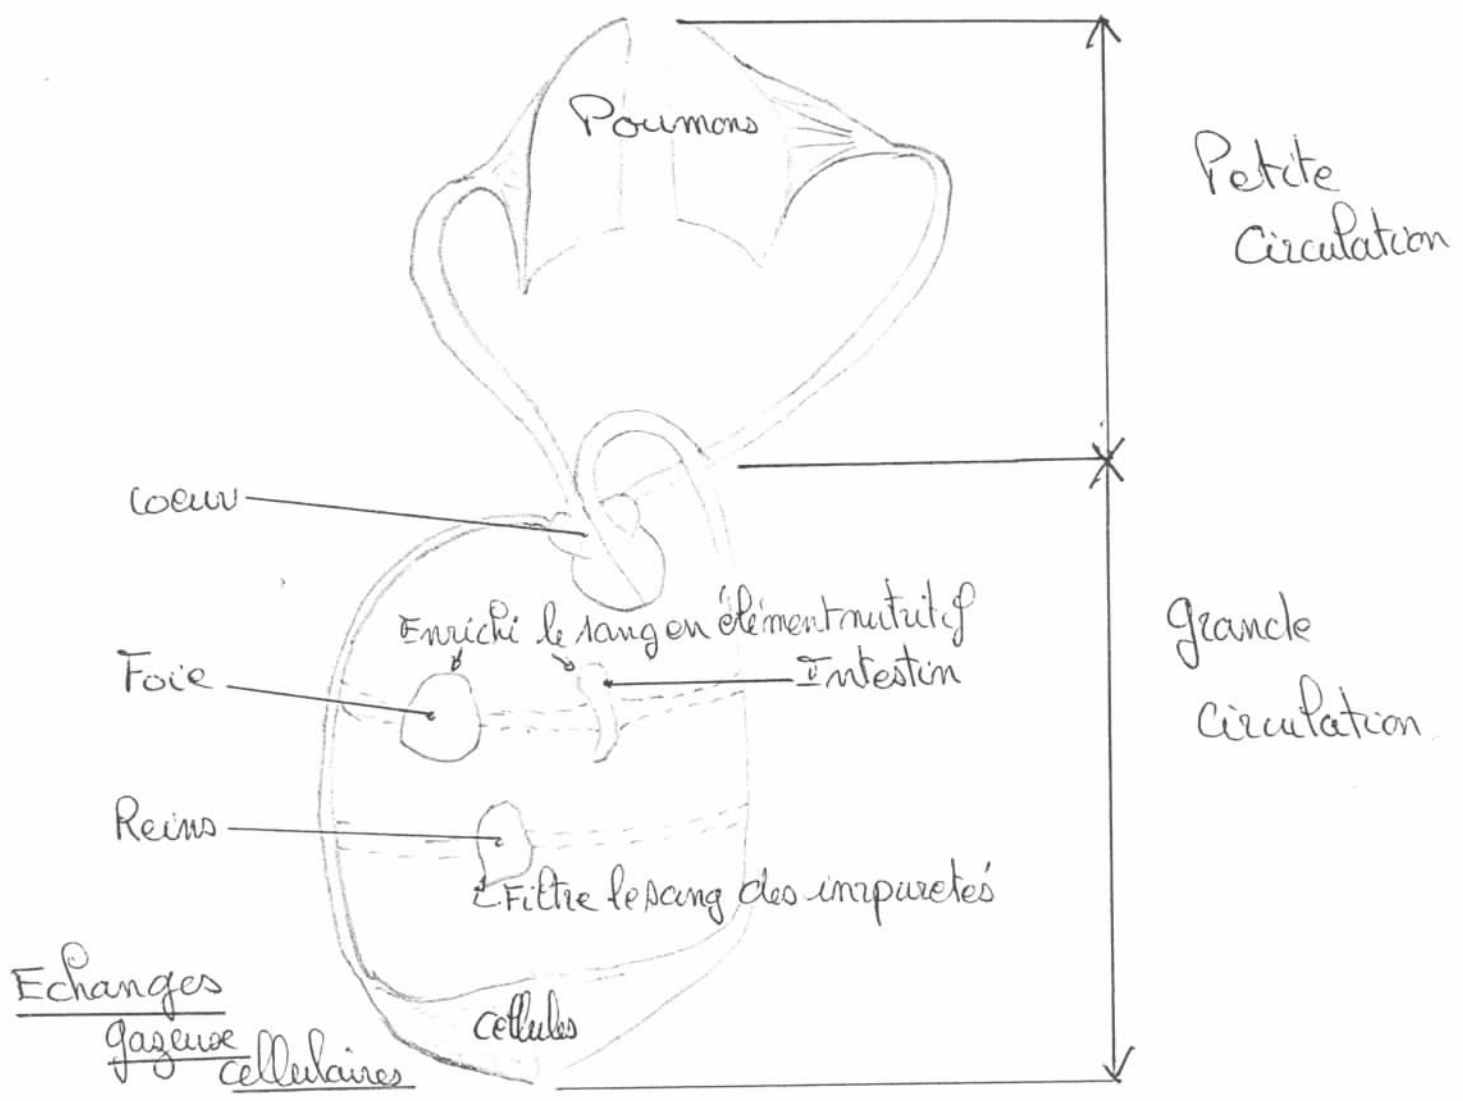 Poumons
Petite
Circulation
coeur
Enrichi le sang en élément nutritif
Foie
Intestin
Grande
Circulation
Reins
Filtre le sang des impuretés
Echanges
gazeuse
cellulaires
cellules